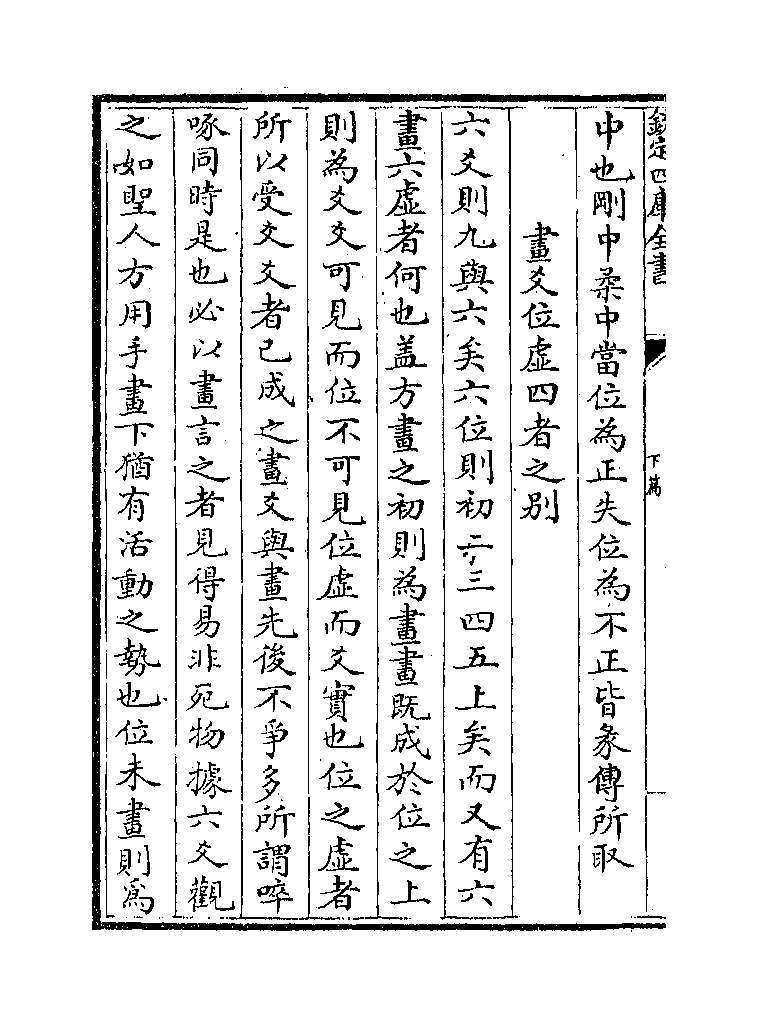 欽定四庫全書
下篇
中也剛中柔中當位為正失位為不正皆彖傳所取
畫爻位虛四者之别
六爻則九與六矣六位則初二三四五上矣而又有六
畫六虛者何也盖方畫之初則為畫畫既成於位之上
則為爻爻可見而位不可見位虛而爻實也位之虛者
所以受爻爻者已成之畫爻與畫先後不爭多所謂啐
啄同時是也必以畫言之者見得易非死物據六爻觀
之如聖人方用手畫下猶有活動之勢也位未畫則爲